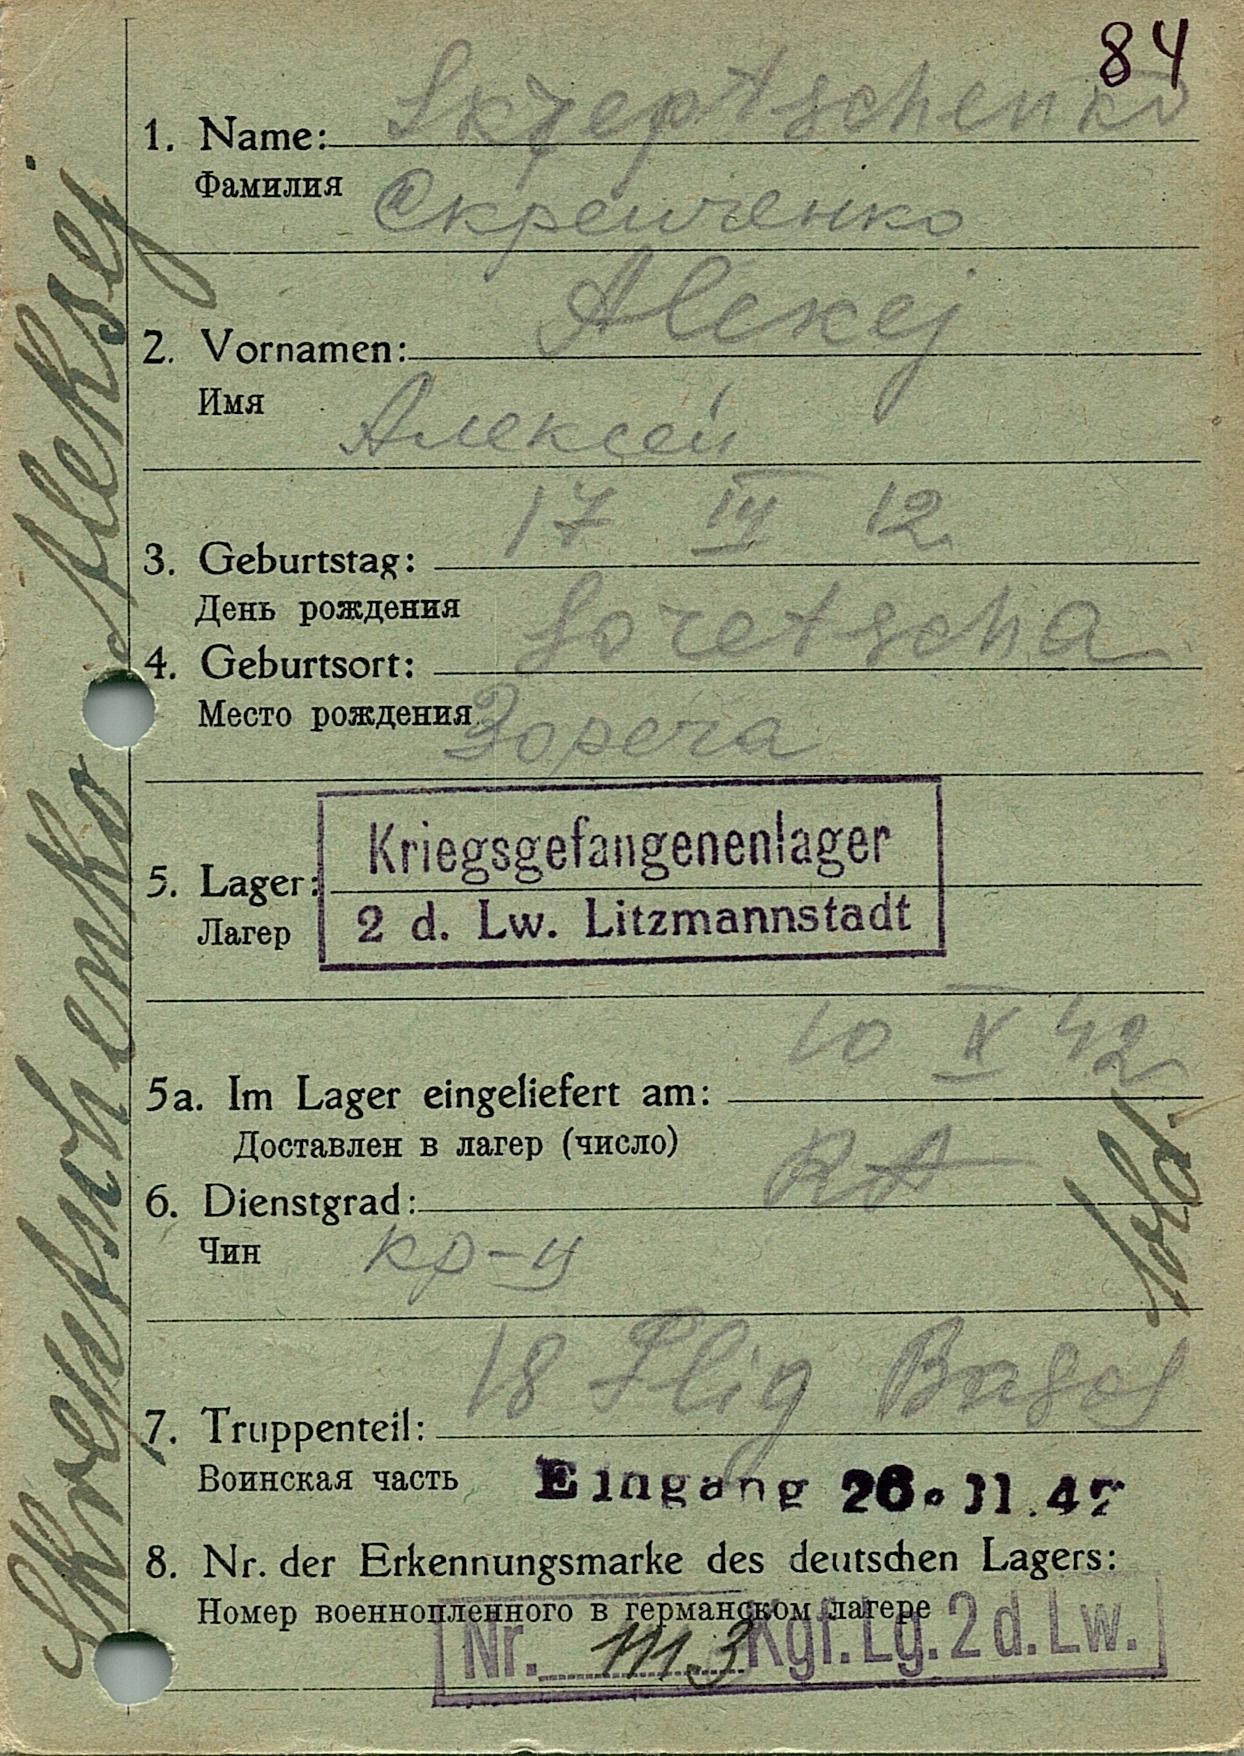 84
1. Name: Skreptschenko
Фамилия Скрепченко
2. Vornamen: Alekej
Имя
Алексей
3. Geburtstag: 17 III 12
День рождения
4. Geburtsort: Soretscha
Место рождения Зореча
5. Lager: Kriegsgefangenenlager
Лагер 2 d. Lw. Litzmannstadt
5a. Im Lager eingeliefert am: 10 X 42
Доставлен в лагер (число)
6. Dienstgrad: RA
Чин кр-ц
Sold.
7. Truppenteil: 18
Воинская часть Eingang 26. 11. 42
8. Nr. der Erkennungsmarke des deutschen Lagers:
Номер военнопленного в германском лагере
Nr. 1113 Kgf. Lg. 2 d. Lw.
Skreptschenko Aleksej